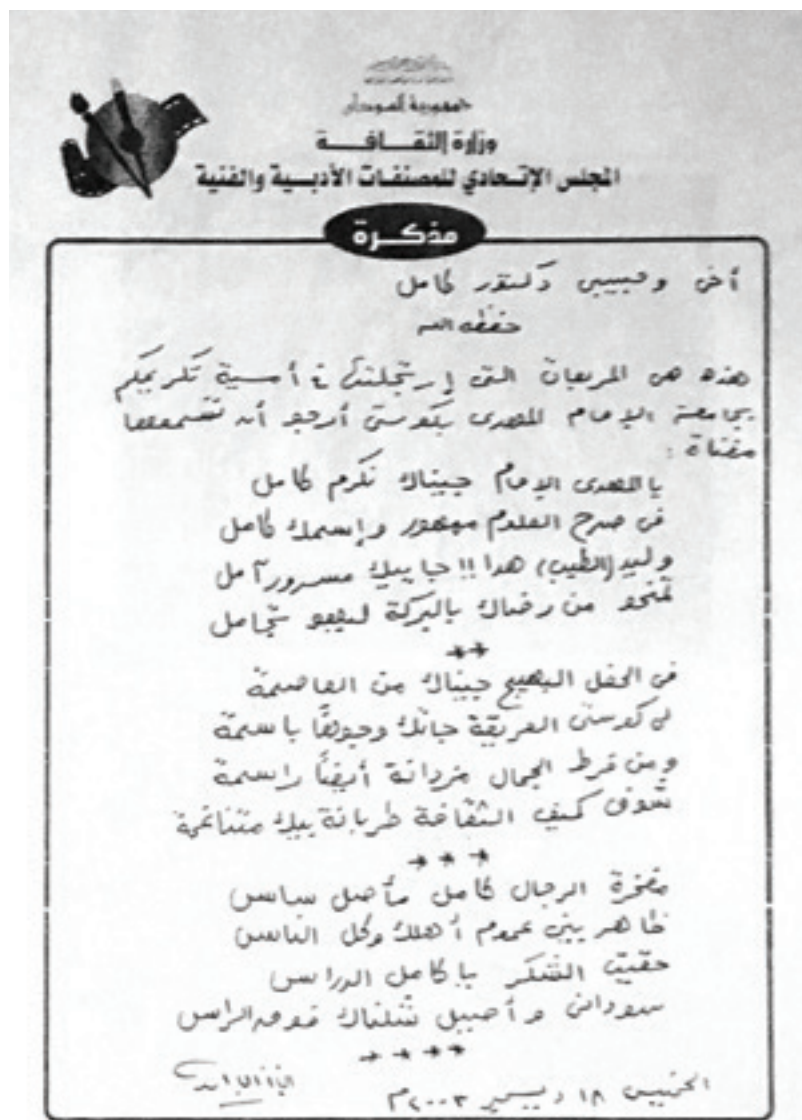 جمهورية السودان
وزارة الثقافة
المجلس الإتحادي للمصنفات الأدبية والفنية
مذكرة
أخى وحبيبى دكتور كامل
حفظه الله
هذه هى المربعات التى إرتجلتها فى أمسية تكريمكم
بجامعة الإمام المهدى بكوستى أرجو أن تسمعها
مغناة :
يا المهدى الإمام جيناك نكرم كامل
فى صرح العلوم مبهور وإسمك كامل
وليد (الطيب) هدا !! جاييك مسرور آمل
تمنحو من رضاك بالبركة ليهو تجامل
**
فى الحفل البهيج جيناك من العاصمة
لى كوستى العريقة جاتك وجوها باسمة
ومن فرط الجمال مزدانة أيضاً راسمة
شوف كيف الثقافة طربانة بيك متناغمة
***
مفخرة الرجال كامل مأصل ساس
ظاهر بين عموم أهلك وكل الناس
حقيق الشكر يا كامل الدراس
سودانى وأصيل شلناك فوق الراس
****
الخميس ١٨ ديسمبر ٢٠٠٣م